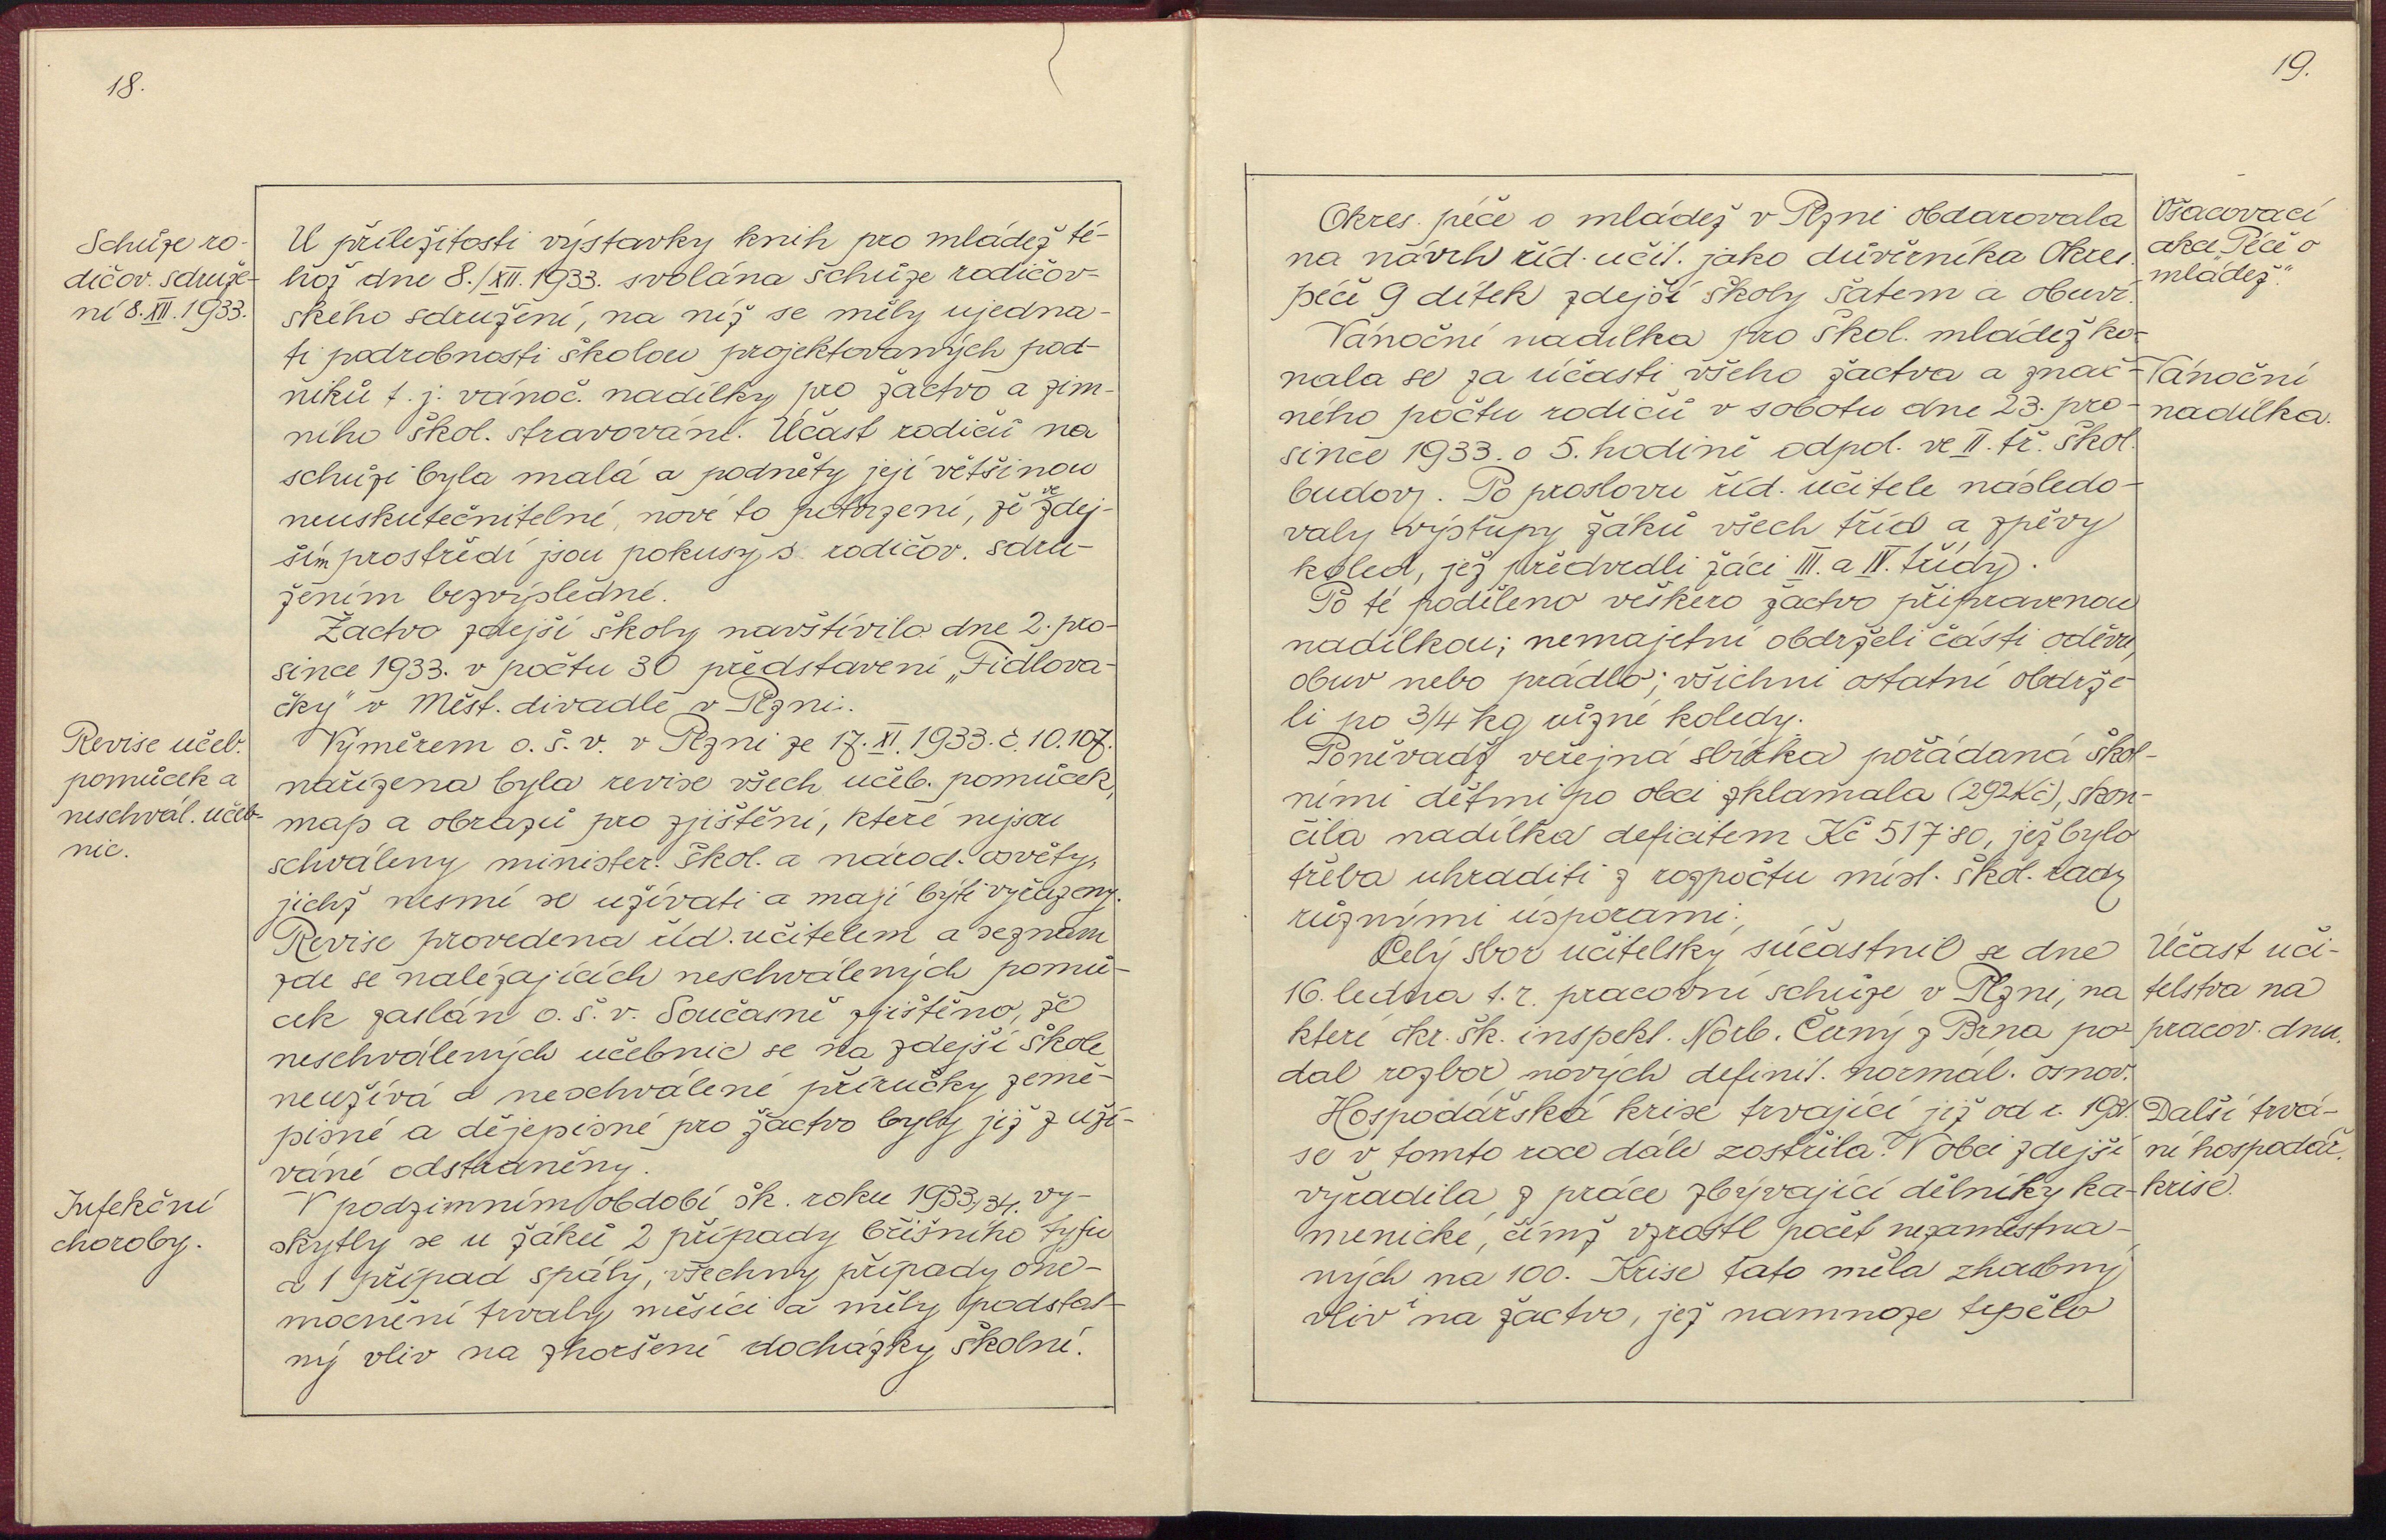 18.
Schůze ro-
dičov. sdruže-
ní 8.XII.1933.
U příležitosti výstavky knih pro mládež té-
hož dne 8./XII.1933. svolána schůze rodičov-
ského sdružení, na níž se měly ujedna-
ti podrobnosti školou projektovaných pod-
niků t. j. vánoč. nadílky pro žactvo a zim-
ního škol. stravování. Účast rodičů na
schůzi byla malá a podněty její většinou
neuskutečnitelné, nové to potvrzení, že ve zdej-
ším prostředí jsou pokusy s rodičov. sdru-
žením bezvýsledné.
Žactvo zdejší školy navštívilo dne 2. pro-
since 1933. v počtu 30 představení „Fidlova-
čky" v Měst. divadle v Plzni.
Revise učeb.
pomůcek a
neschvál. učeb-
nic.
Výměrem o. š. v. v Plzni ze 17. XI. 1933. č. 10.107.
nařízena byla revise všech učeb. pomůcek,
map a obrazů pro zjištění, které nejsou
schváleny minister. škol. a národ. osvěty,
jichž nesmí se užívati a mají býti vyřazeny.
Revise provedena říd. učitelem a seznam
zde se nalézajících neschválených pomů-
cek zaslán o. š. v. Současně zjištěno, že
neschválených učebnic se na zdejší škole
neužívá a neschválené příručky země-
pisné a dějepisné pro žactvo byly již z uží-
vání odstraněny.
Infekční
choroby.
V podzimním období šk. roku 1933/34. vy-
skytly se u žáků 2 případy břišního tyfu
a 1 případ spály, všechny případy one-
mocnění trvaly měsíci a měly podstat-
ný vliv na zhoršení docházky školní.
19.
Okres. péče o mládež v Plzni obdarovala
na návrh říd. učit. jako důvěrníka Okres.
péče 9 dítek zdejší školy šatem a obuví.
Ošacovací
akce „Péče o
mládež".
Vánoční nadílka pro škol. mládež ko-
nala se za účasti všeho žactva a znač-
ného počtu rodičů v sobotu dne 23. pro-
since 1933. o 5. hodině odpol. ve II. tř. škol.
budovy. Po proslovu říd. učitele následo-
valy výstupy žáků všech tříd a zpěvy
koled, jež předvedli žáci III. a IV. třídy.
Vánoční
nadílka.
Po té poděleno veškero žactvo připravenou
nadílkou; nemajetní obdrželi části oděvu,
obuv nebo prádlo; všichni ostatní obdrže-
li po 3/4 kg různé koledy.
Poněvadž veřejná sbírka pořádaná škol-
ními dětmi po obci zklamala (292Kč), skon-
čila nadílka deficitem Kč 517·80, jež bylo
třeba uhraditi z rozpočtu míst. škol. rady
různými úsporami.
Celý sbor učitelský súčastnil se dne
16. ledna t. r. pracovní schůze v Plzni, na
které okr. šk. inspekt. Norb. Černý z Brna po-
dal rozbor nových definit. normál. osnov.
Účast uči-
telstva na
pracov. dnu.
Hospodářská krise trvající již od r. 1931.
se v tomto roce dále zostřila. V obci zdejší
vyřadila z práce zbývající dělníky ka-
menické, čímž vzrostl počet nezaměstna-
ných na 100. Krise tato měla zhoubný
vliv i na žactvo, jež namnoze trpělo
Další trvá-
ní hospodář.
krise.